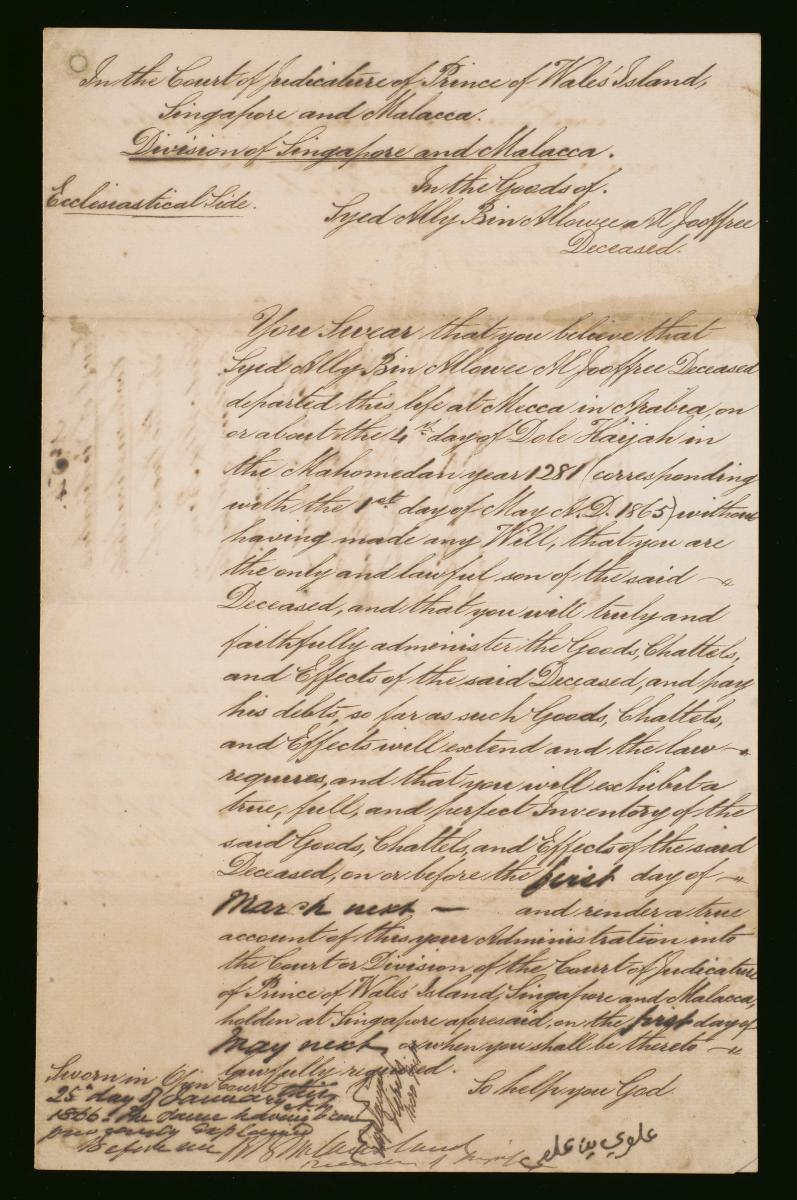 In the Court of Judicature of Prince of Wales' Island,
Singapore and Malacca.
Division of Singapore and Malacca.
In the Goods of.
Ecclesiastical Side.
Syed Ally Bin Allowee Al Jooffree
Deceased.
You Swear that you believe that
Syed Ally Bin Allowee Al Jooffree Deceased
departed this life at Mecca in Arabia, on
or about the 4th day of Dole Haijah in
the Mahomedan year 1281 (corresponding
with the 1st day of May A.D. 1865) without
having made any Will, that you are
the only and lawful son of the said
Deceased, and that you will truly and
faithfully administer the Goods, Chattels,
and Effects of the said Deceased, and pay
his debts, so far as such Goods, Chattels,
and Effects will extend and the law
requires, and that you will exhibit a
true, full, and perfect Inventory of the
said Goods, Chattels, and Effects of the said
Deceased, on or before the first day of
March next — and render a true
account of this your Administration into
the Court or Division of the Court of Judicature
of Prince of Wales' Island, Singapore and Malacca,
holden at Singapore aforesaid, on the first day of
May next or when you shall be thereto
lawfully required.
So help you God
Sworn in Open Court this
25th day of January
1866. the same having been
previously explained
Before me
علوي بن علي